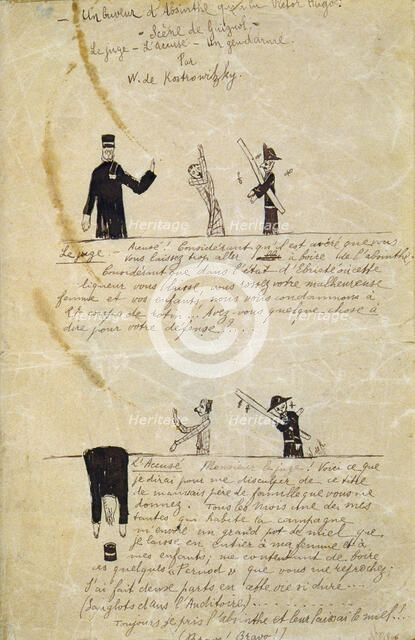 Un buveur d'Absinthe qui a lu Victor Hugo.
- Scène de Guignol -
Le juge - L'Accusé - Un gendarme.
Par
W. de Kostrowitzky.
Le juge. - Accusé! Considérant qu'il est avéré que vous
vous laissez trop aller à boire de l'absinthe.
Considérant que dans l'état d'Ebriété où cette
liqueur vous laisse vous rossez votre malheureuse
femme et vos enfants, nous vous condamnons à
de Rotin... Avez-vous quelque chose à
dire pour votre défense?...
L'Accusé Monsieur le juge! Voici ce que
je dirai pour me disculper de ce titre
de mauvais père de famille que vous me
donnez. Tous les mois une de mes
tantes qui habite la campagne
m'envoie un grand pot de miel que
je laisse en entier à ma femme et à
mes enfants, me contentant de boire
les quelques "Pernod" que vous me reprochez.
J'ai fait deux parts en cette vie si dure...
(Sanglots dans l'Auditoire)
Toujours je pris l'absinthe et leur laissai le miel!...
(Bravo! Bravo!)
Heritage
Heritage
Heritage
Heritage
Heritage
Heritage
Images